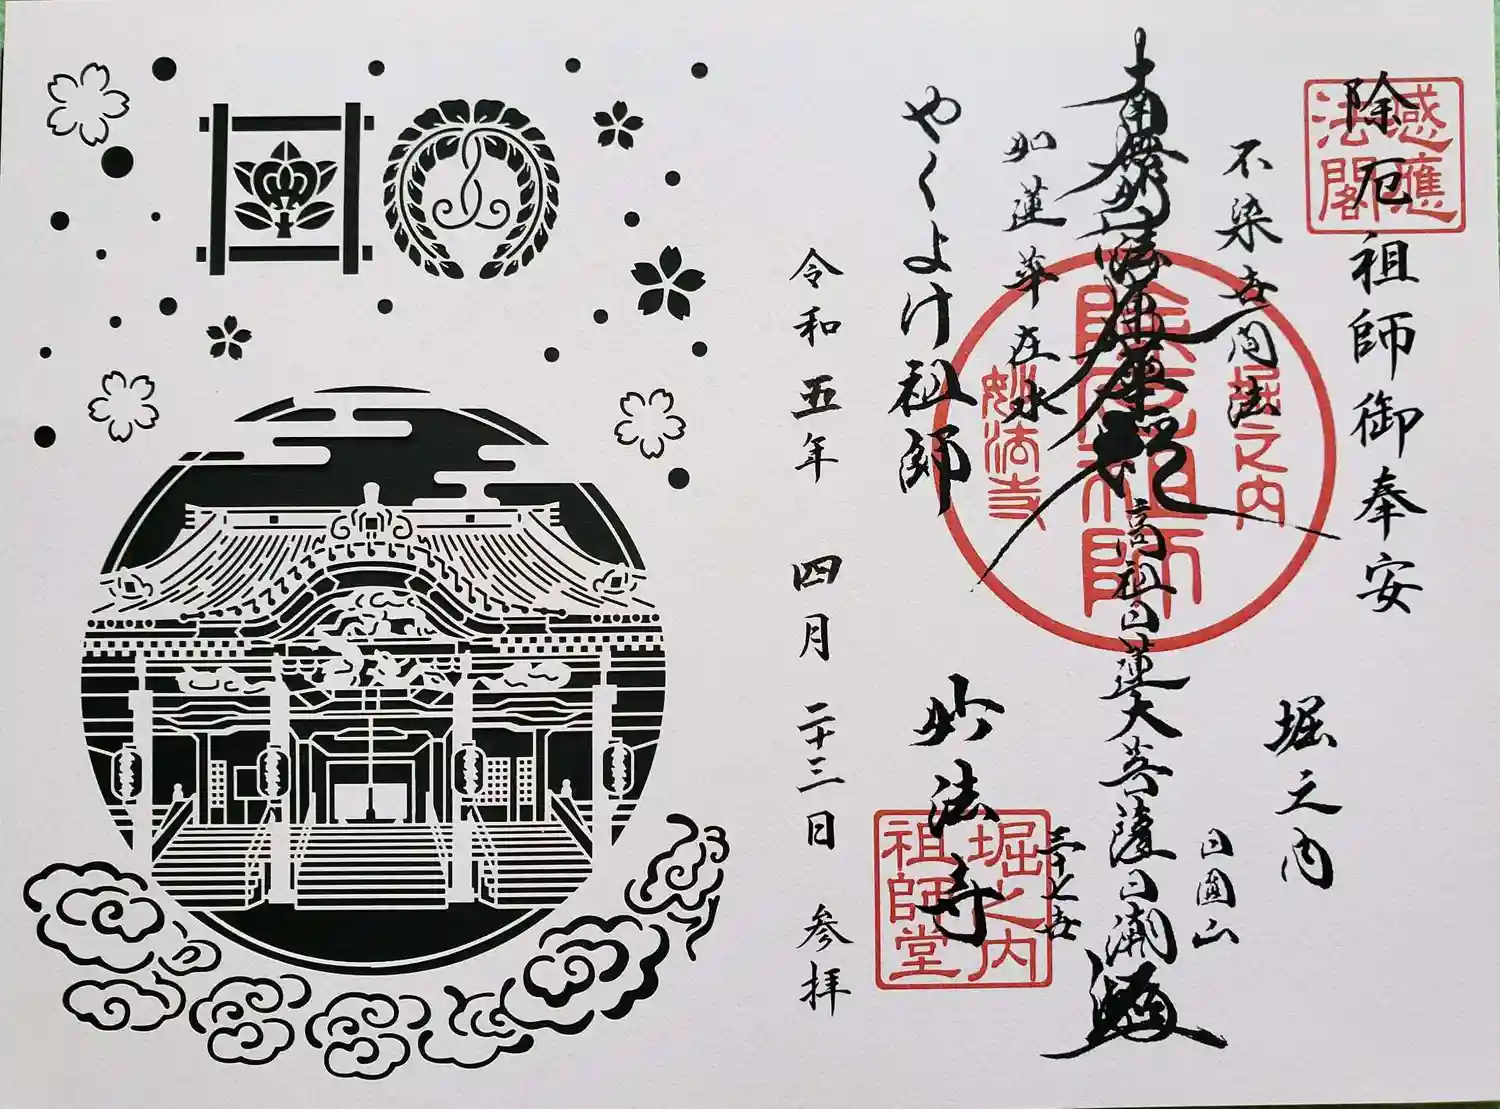 除厄祖師御奉安
感應
法閣
堀之内
不染世間法
堀之内
日圓山
南無妙法蓮華経
高祖日蓮大菩薩
日潮
除厄祖師
如蓮華在水
妙法寺
三十七世
やくよけ祖師
妙法寺
堀之内
祖師堂
令和五年 四月 二十三日 参拝